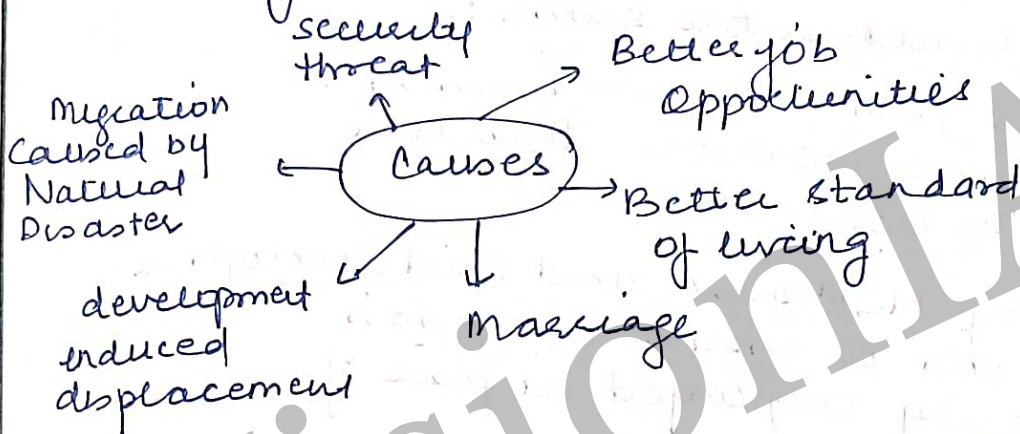 security
threat
Better job
Opportunities
Migration
Caused by
Natural
Disaster
Causes
Better standard
of living
development
induced
displacement
Marriage
VisionIA